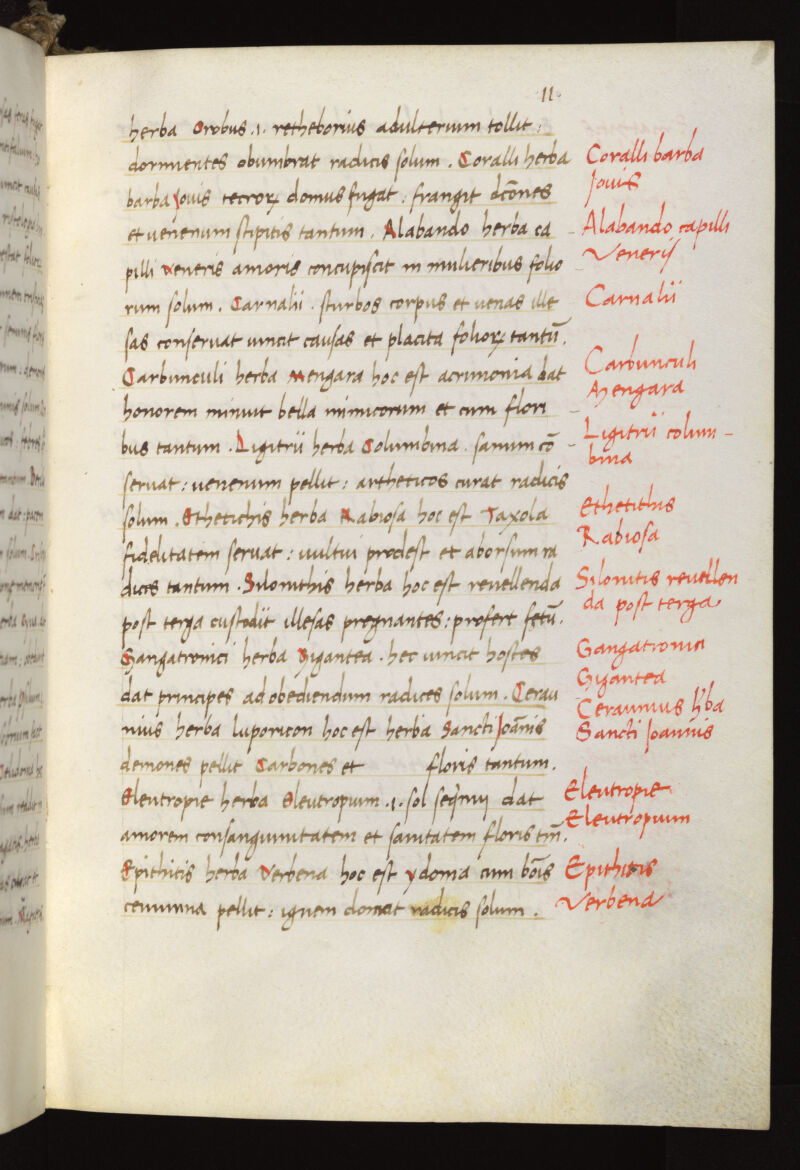 11
herba Orobus .i. retheborius adulterium tollit:
dormientes obumbrat radicis solum. Coralli herba
barba Jovis tecrorꝝ domus fugat: frangit dẽones
et venenum stipitis tantum. Alabando herba ca
pilli Veneris amoris concupiscit in mulieribus folio
rum solum. Carnalii. sturbos corpus et venas ille
sas conservat vincit causas et placita foliorꝝ tantũ.
Carbunculi herba Mengara hoc est acrimonia dat
honorem minuit bella inimicorum et cum flori
bus tantum. Ligitrii herba Columbina. sanum cõ
servat: venenum pellit: artheticos curat radicis
solum. Ethetichis herba Rabiosa hoc est Taxola
fidelitatem servat: vultui prodest et aborsum ra
dicis tantum. Silonithis herba hoc est revellenda
post terga custodit illesas pregnantes: profert fetũ.
Gangatronici herba Gigantea. hec vincit hostes
dat principes ad obediendum radices solum. Cerau
nius herba luporicon hoc est herba Sancti Joãnis
demones pellit Carbones et floris tantum.
Eleutropie herba Eleutropium .i. sol dat
amorem consanguinitatem et sanitatem floris tm̃.
Epithitis herba Verbena hoc est ydoma cum bõis
pellit: ignem domat radicis solum.
Coralli barba
Jovis
Alabando capilli
Veneris
Carnalii
Carbunculi
Mengara
Ligitrii colum-
bina
Ethetithis
Rabiosa
Silonitis revellen
da post terga
Gangatronia
Gigantea
Ceraunius h'ba
Sancti Joannis
Eleutropie
Eleutropium
Epithitis
Verbena